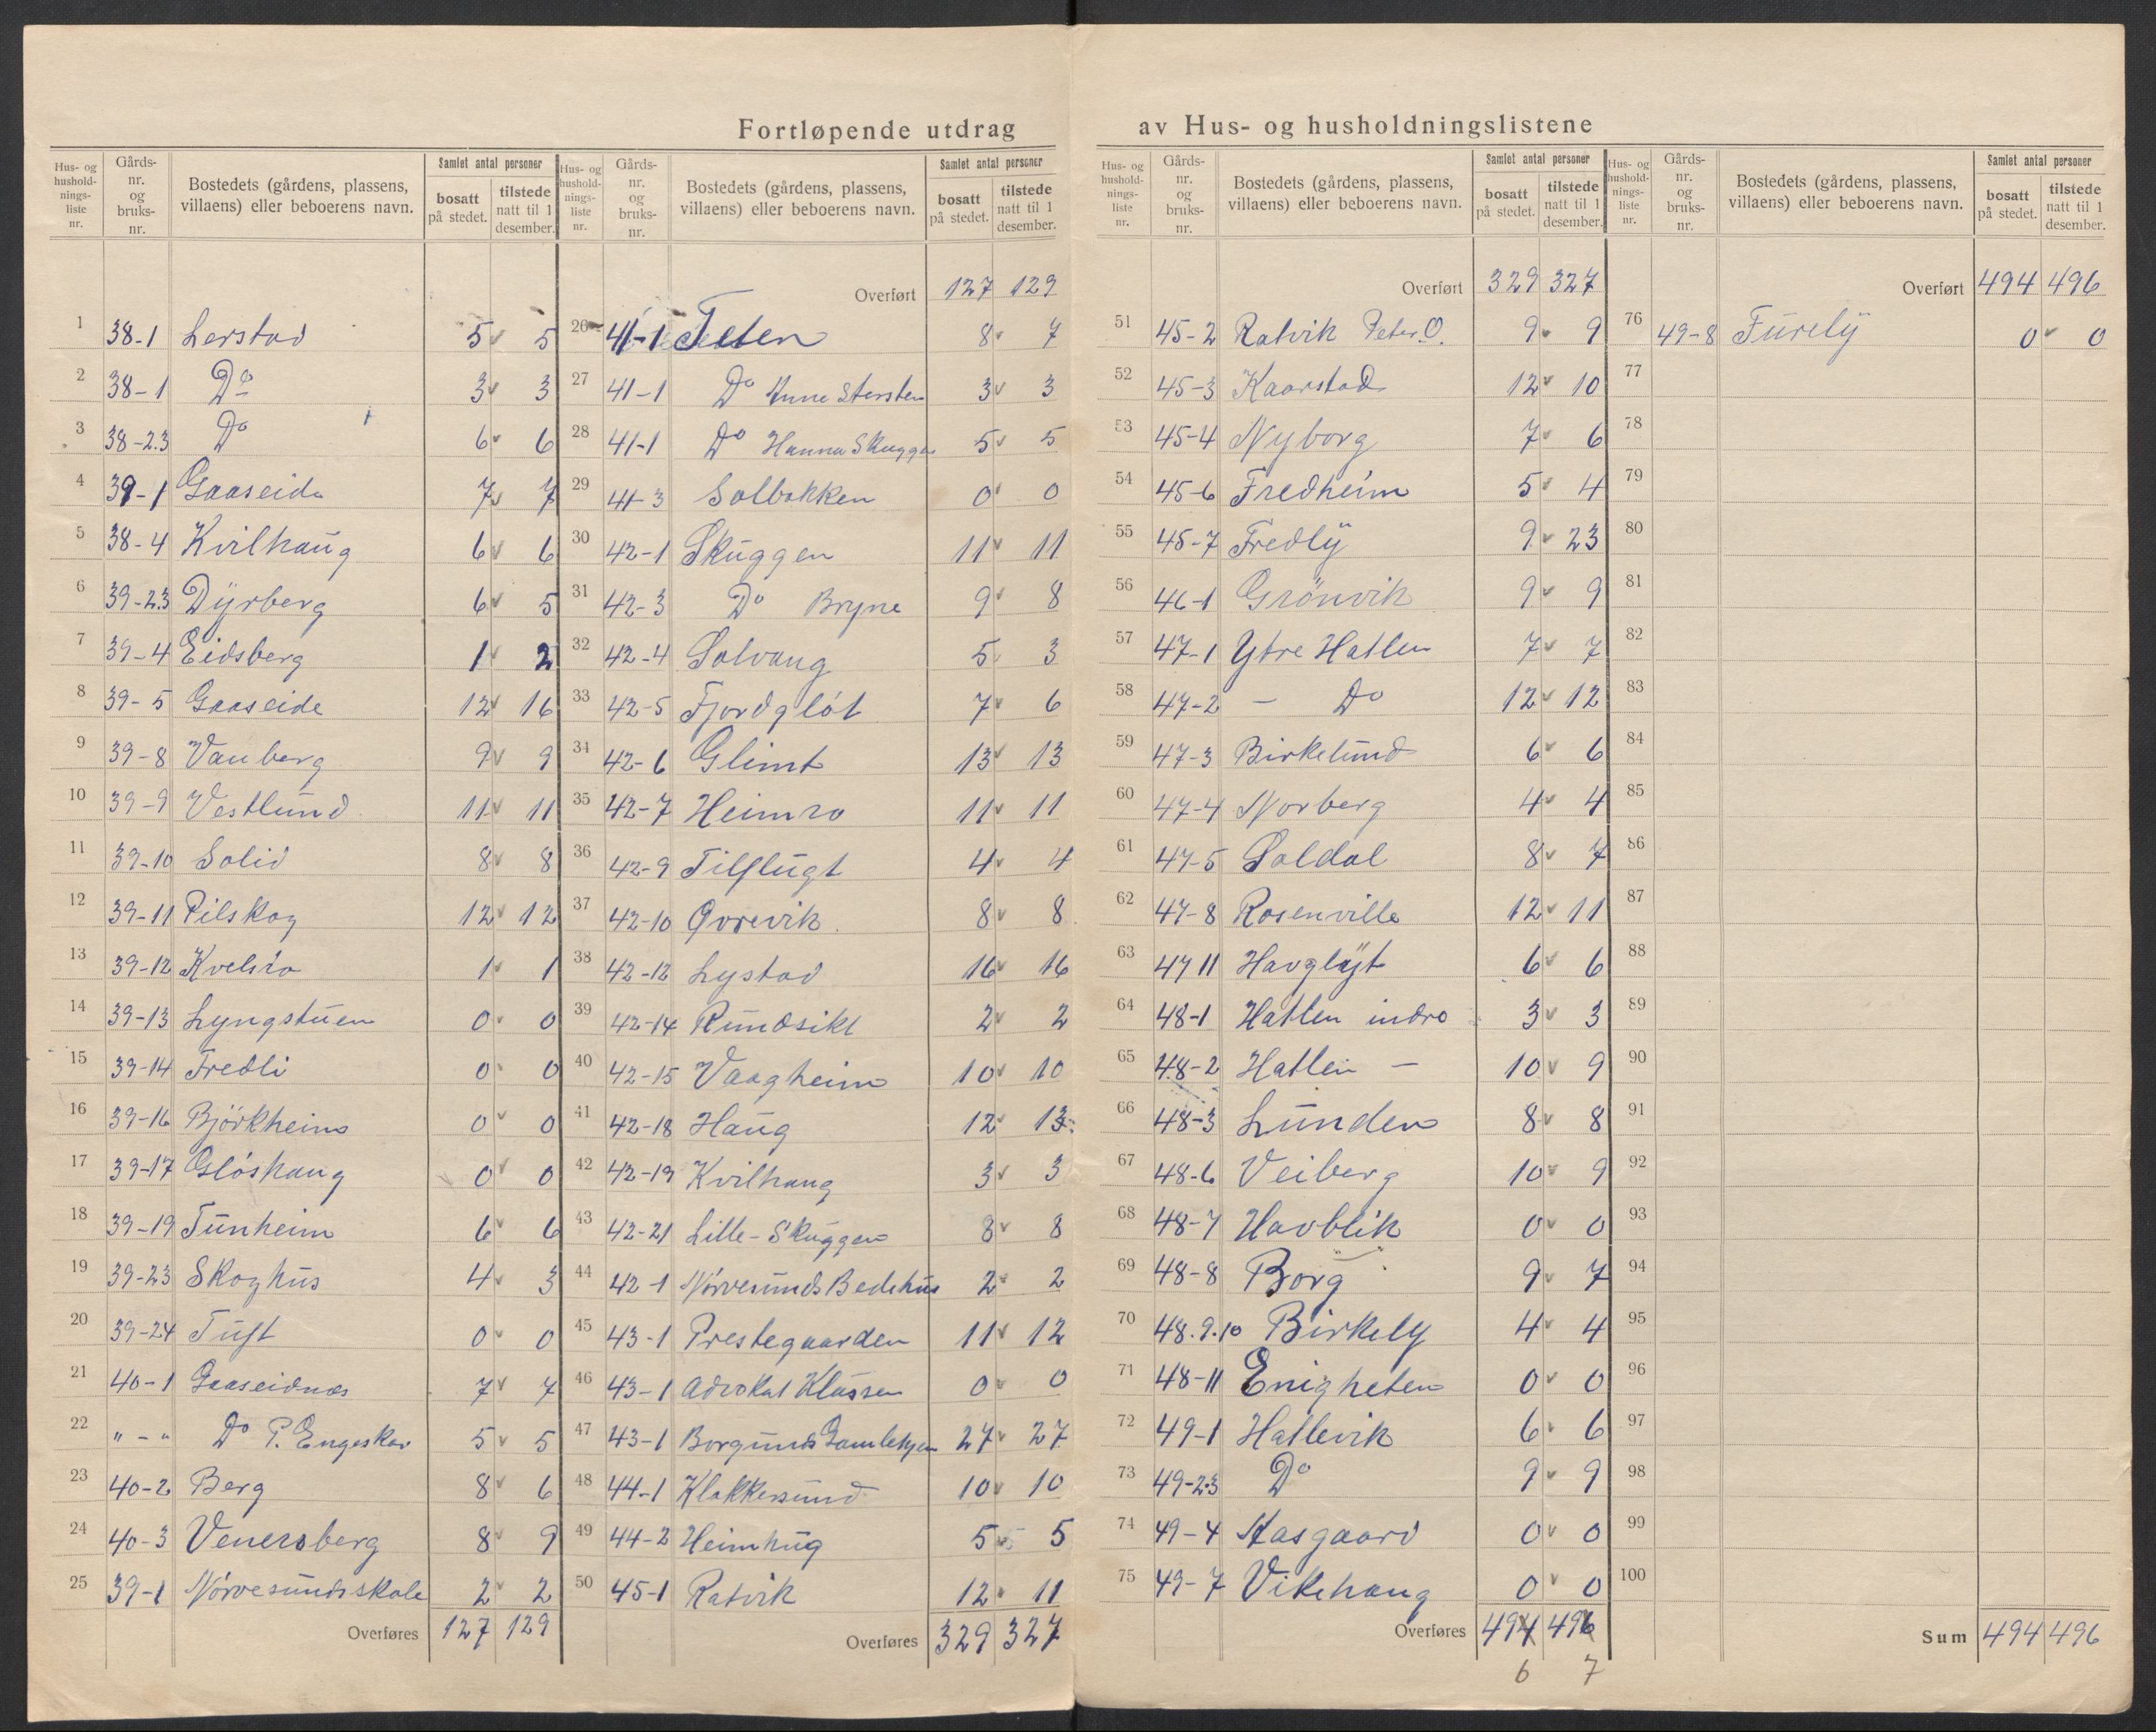 Fortløpende utdrag av Hus- og husholdningslistene
Hus- og husholdningsliste nr. Gårds- nr. og bruks- nr. Bostedets (gårdens, plassens, villaens) eller beboerens navn. Samlet antal personer bosatt på stedet. tilstede natt til 1 desember.
1 38-1 Lerstad 5 5
2 38-1 Do 3 3
3 38-2.3 Do 6 6
4 39-1 Gaaseide 7 7
5 38-4 Kvilhaug 6 6
6 39-2.3 Dyrberg 6 5
7 39-4 Eidsberg 1 2
8 39-5 Gaaseide 12 16
9 39-8 Vanberg 9 9
10 39-9 Vestlund 11 11
11 39-10 Solid 8 8
12 39-11 Pilskog 12 12
13 39-12 Kvelsro 1 1
14 39-13 Lyngstuen 0 0
15 39-14 Fredli 0 0
16 39-16 Björkheim 0 0
17 39-17 Glöshaug 0 0
18 39-19 Tunheim 6 6
19 39-23 Skoghus 4 3
20 39-24 Tuft 0 0
21 40-1 Gaaseidnes 7 7
22 " - " Do P. Engeskar 5 5
23 40-2 Berg 8 6
24 40-3 Venersberg 8 9
25 39-1 Nörvesundsskole 2 2
Overføres 127 129
Hus- og husholdningsliste nr. Gårds- nr. og bruks- nr. Bostedets (gårdens, plassens, villaens) eller beboerens navn. Samlet antal personer bosatt på stedet. tilstede natt til 1 desember.
Overført 127 129
26 41-1 Teten 8 7
27 41-1 Do Anne Stersten 3 3
28 41-1 Do Hanna Skuggen 5 5
29 41-3 Solbakken 0 0
30 42-1 Skuggen 11 11
31 42-3 Do Bryne 9 8
32 42-4 Solvang 5 3
33 42-5 Fjordgløt 7 6
34 42-6 Glimt 13 13
35 42-7 Heimro 11 11
36 42-9 Tilflugt 4 4
37 42-10 Øvrevik 8 8
38 42-12 Lystad 16 16
39 42-14 Rundsikt 2 2
40 42-15 Vaagheim 10 10
41 42-18 Haug 12 13
42 42-19 Kvilhaug 3 3
43 42-21 Lille-Skuggen 8 8
44 42-1 Nörvesunds Bedehus 2 2
45 43-1 Prestegaarden 11 12
46 43-1 Advokat Klassen 0 0
47 43-1 Borgunds Gamlehjem 27 27
48 44-1 Klokkersund 10 10
49 44-2 Heimhug 5 5
50 45-1 Ratvik 12 11
Overføres 329 327
Hus- og husholdningsliste nr. Gårds- nr. og bruks- nr. Bostedets (gårdens, plassens, villaens) eller beboerens navn. Samlet antal personer bosatt på stedet. tilstede natt til 1 desember.
Overført 329 327
51 45-2 Ratvik Peter O. 9 9
52 45-3 Kaarstad 12 10
53 45-4 Nyborg 7 6
54 45-6 Fredheim 5 4
55 45-7 Fredly 9 23
56 46-1 Grönvik 9 9
57 47-1 Ytre Hatlen 7 7
58 47-2 - Do 12 12
59 47-3 Birkelund 6 6
60 47-4 Norberg 4 4
61 47-5 Soldal 8 7
62 47-8 Rosenville 12 11
63 47 11 Havgløjt 6 6
64 48-1 Hatlen indre 3 3
65 48-2 Hatlen - 10 9
66 48-3 Lunden 8 8
67 48-6 Veiberg 10 9
68 48-7 Havblik 0 0
69 48-8 Borg 9 7
70 48.9.10 Birkely 4 4
71 48-11 Enigheten 0 0
72 49-1 Hatlevik 6 6
73 49-2.3 Do 9 9
74 49-4 Aasgaard 0 0
75 49-7 Vikehaug 0 0
Overføres 494 496
6 7
Hus- og husholdningsliste nr. Gårds- nr. og bruks- nr. Bostedets (gårdens, plassens, villaens) eller beboerens navn. Samlet antal personer bosatt på stedet. tilstede natt til 1 desember.
Overført 494 496
76 49-8 Furely 0 0
77
78
79
80
81
82
83
84
85
86
87
88
89
90
91
92
93
94
95
96
97
98
99
100
Sum 494 496